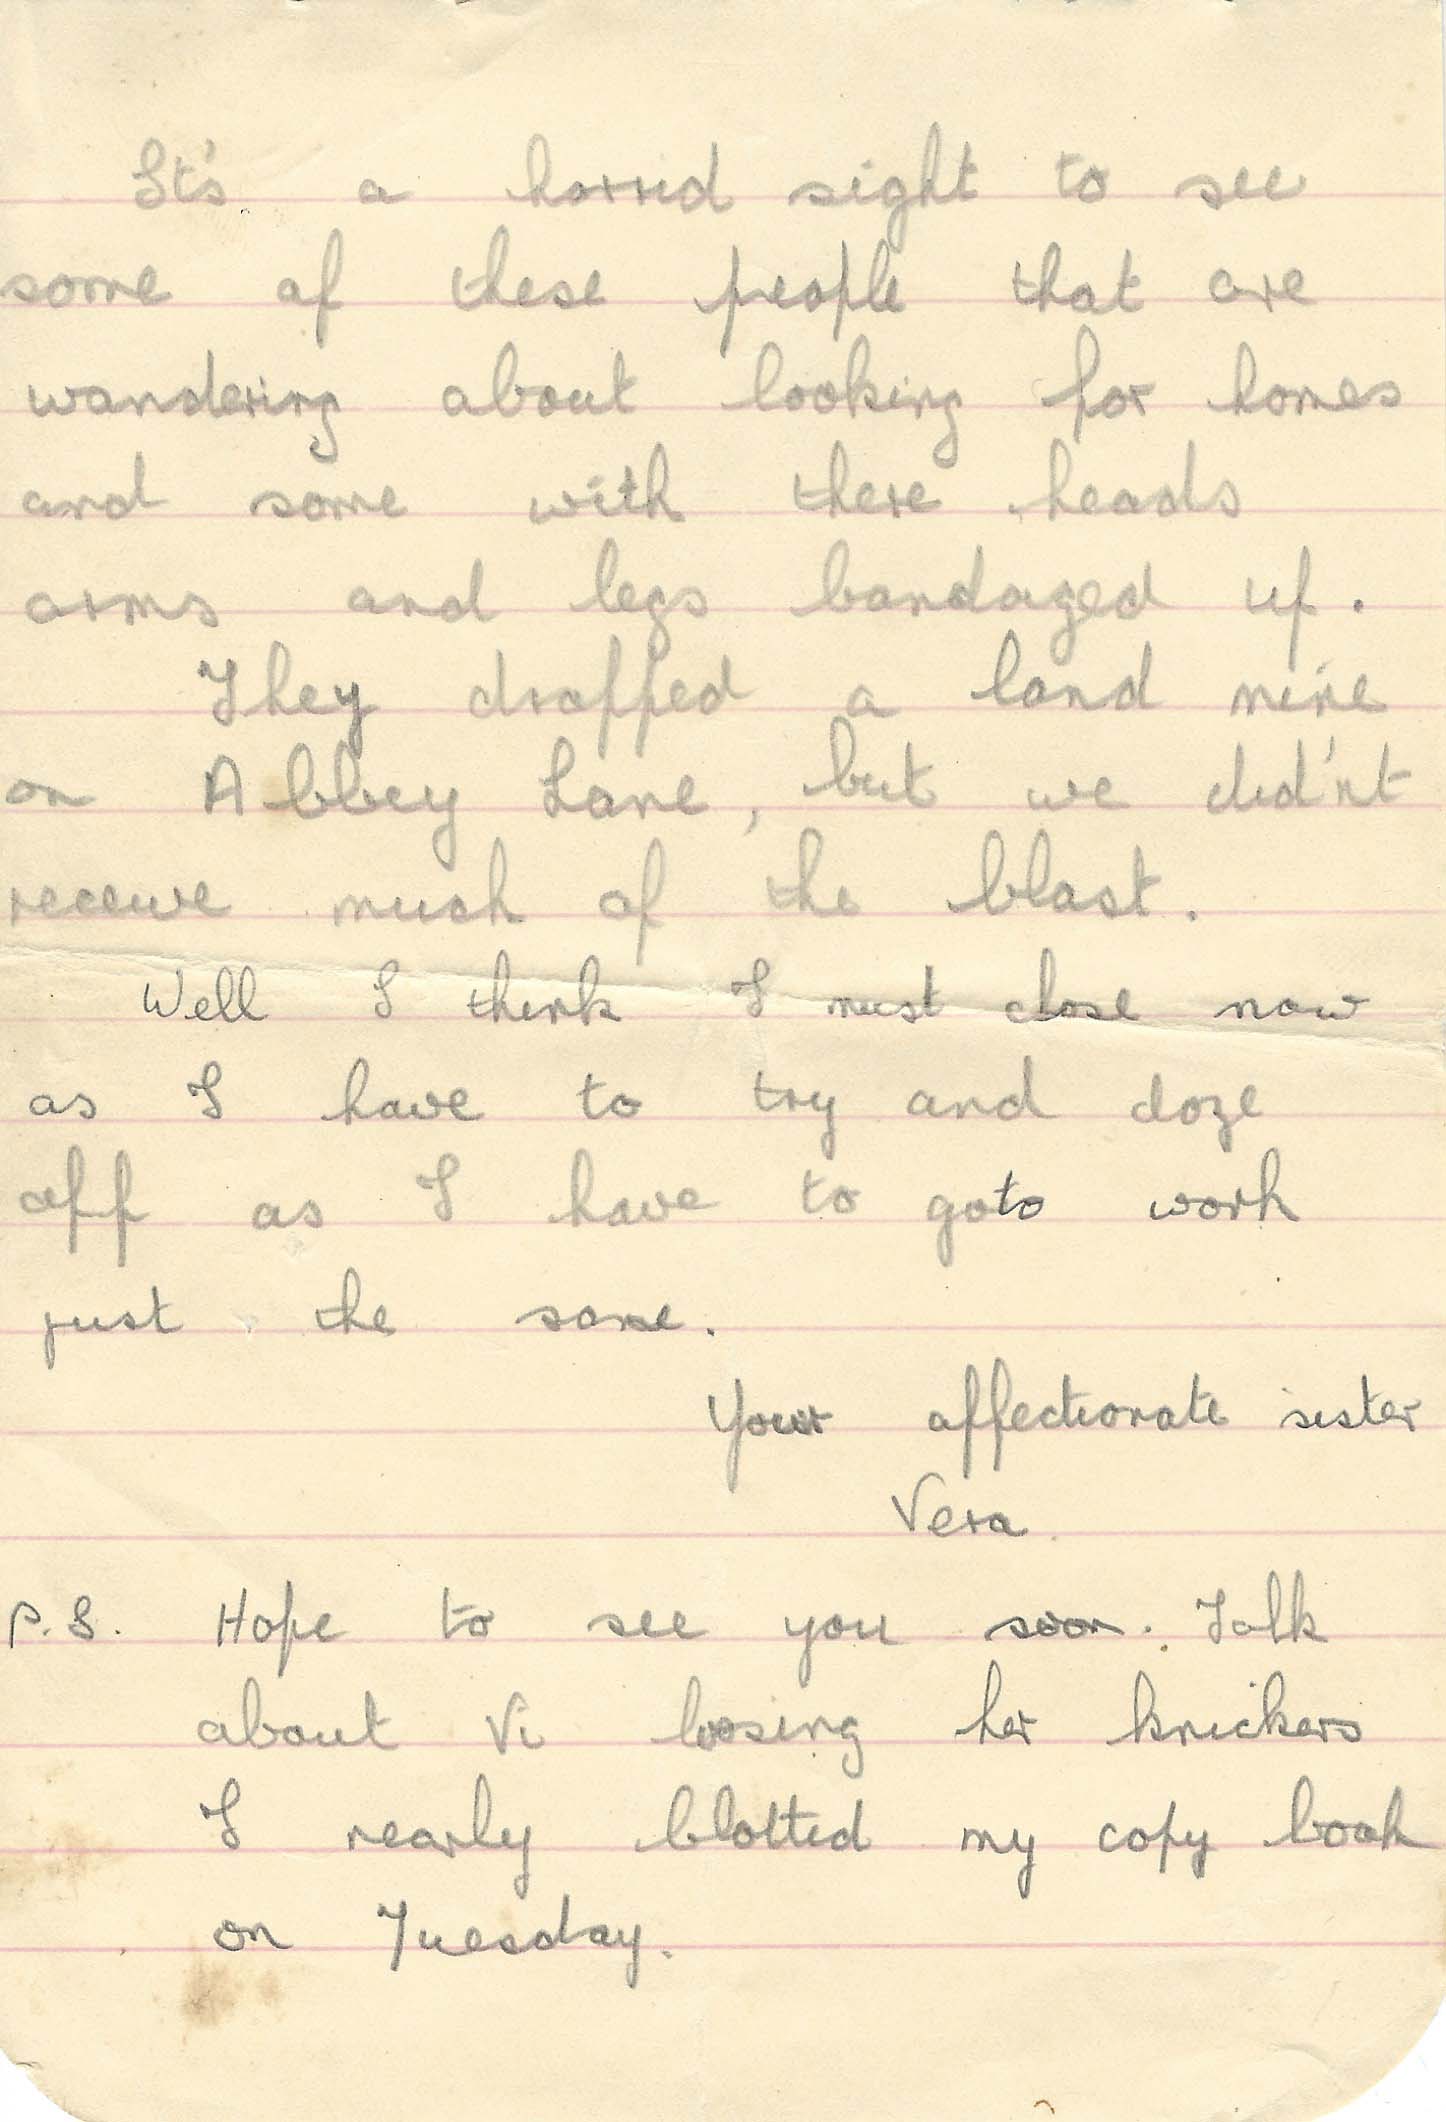 It's a horrid sight to see
some of these people that are
wandering about looking for homes
and some with there heads
arms and legs bandaged up.
They dropped a land mine
on Abbey Lane, but we did'nt
receive much of the blast.
Well I think I must close now
as I have to try and doze
off as I have to go to work
just the same.
Your affectionate sister
Vera.
P.S. Hope to see you soon. Talk
about Vi loosing her knickers
I nearly blotted my copy book
on Tuesday.